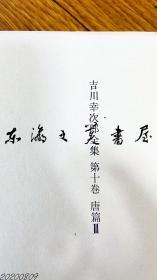 吉川幸次郎全集 第十卷 唐篇Ⅲ
东瀛文艺書屋
20200809